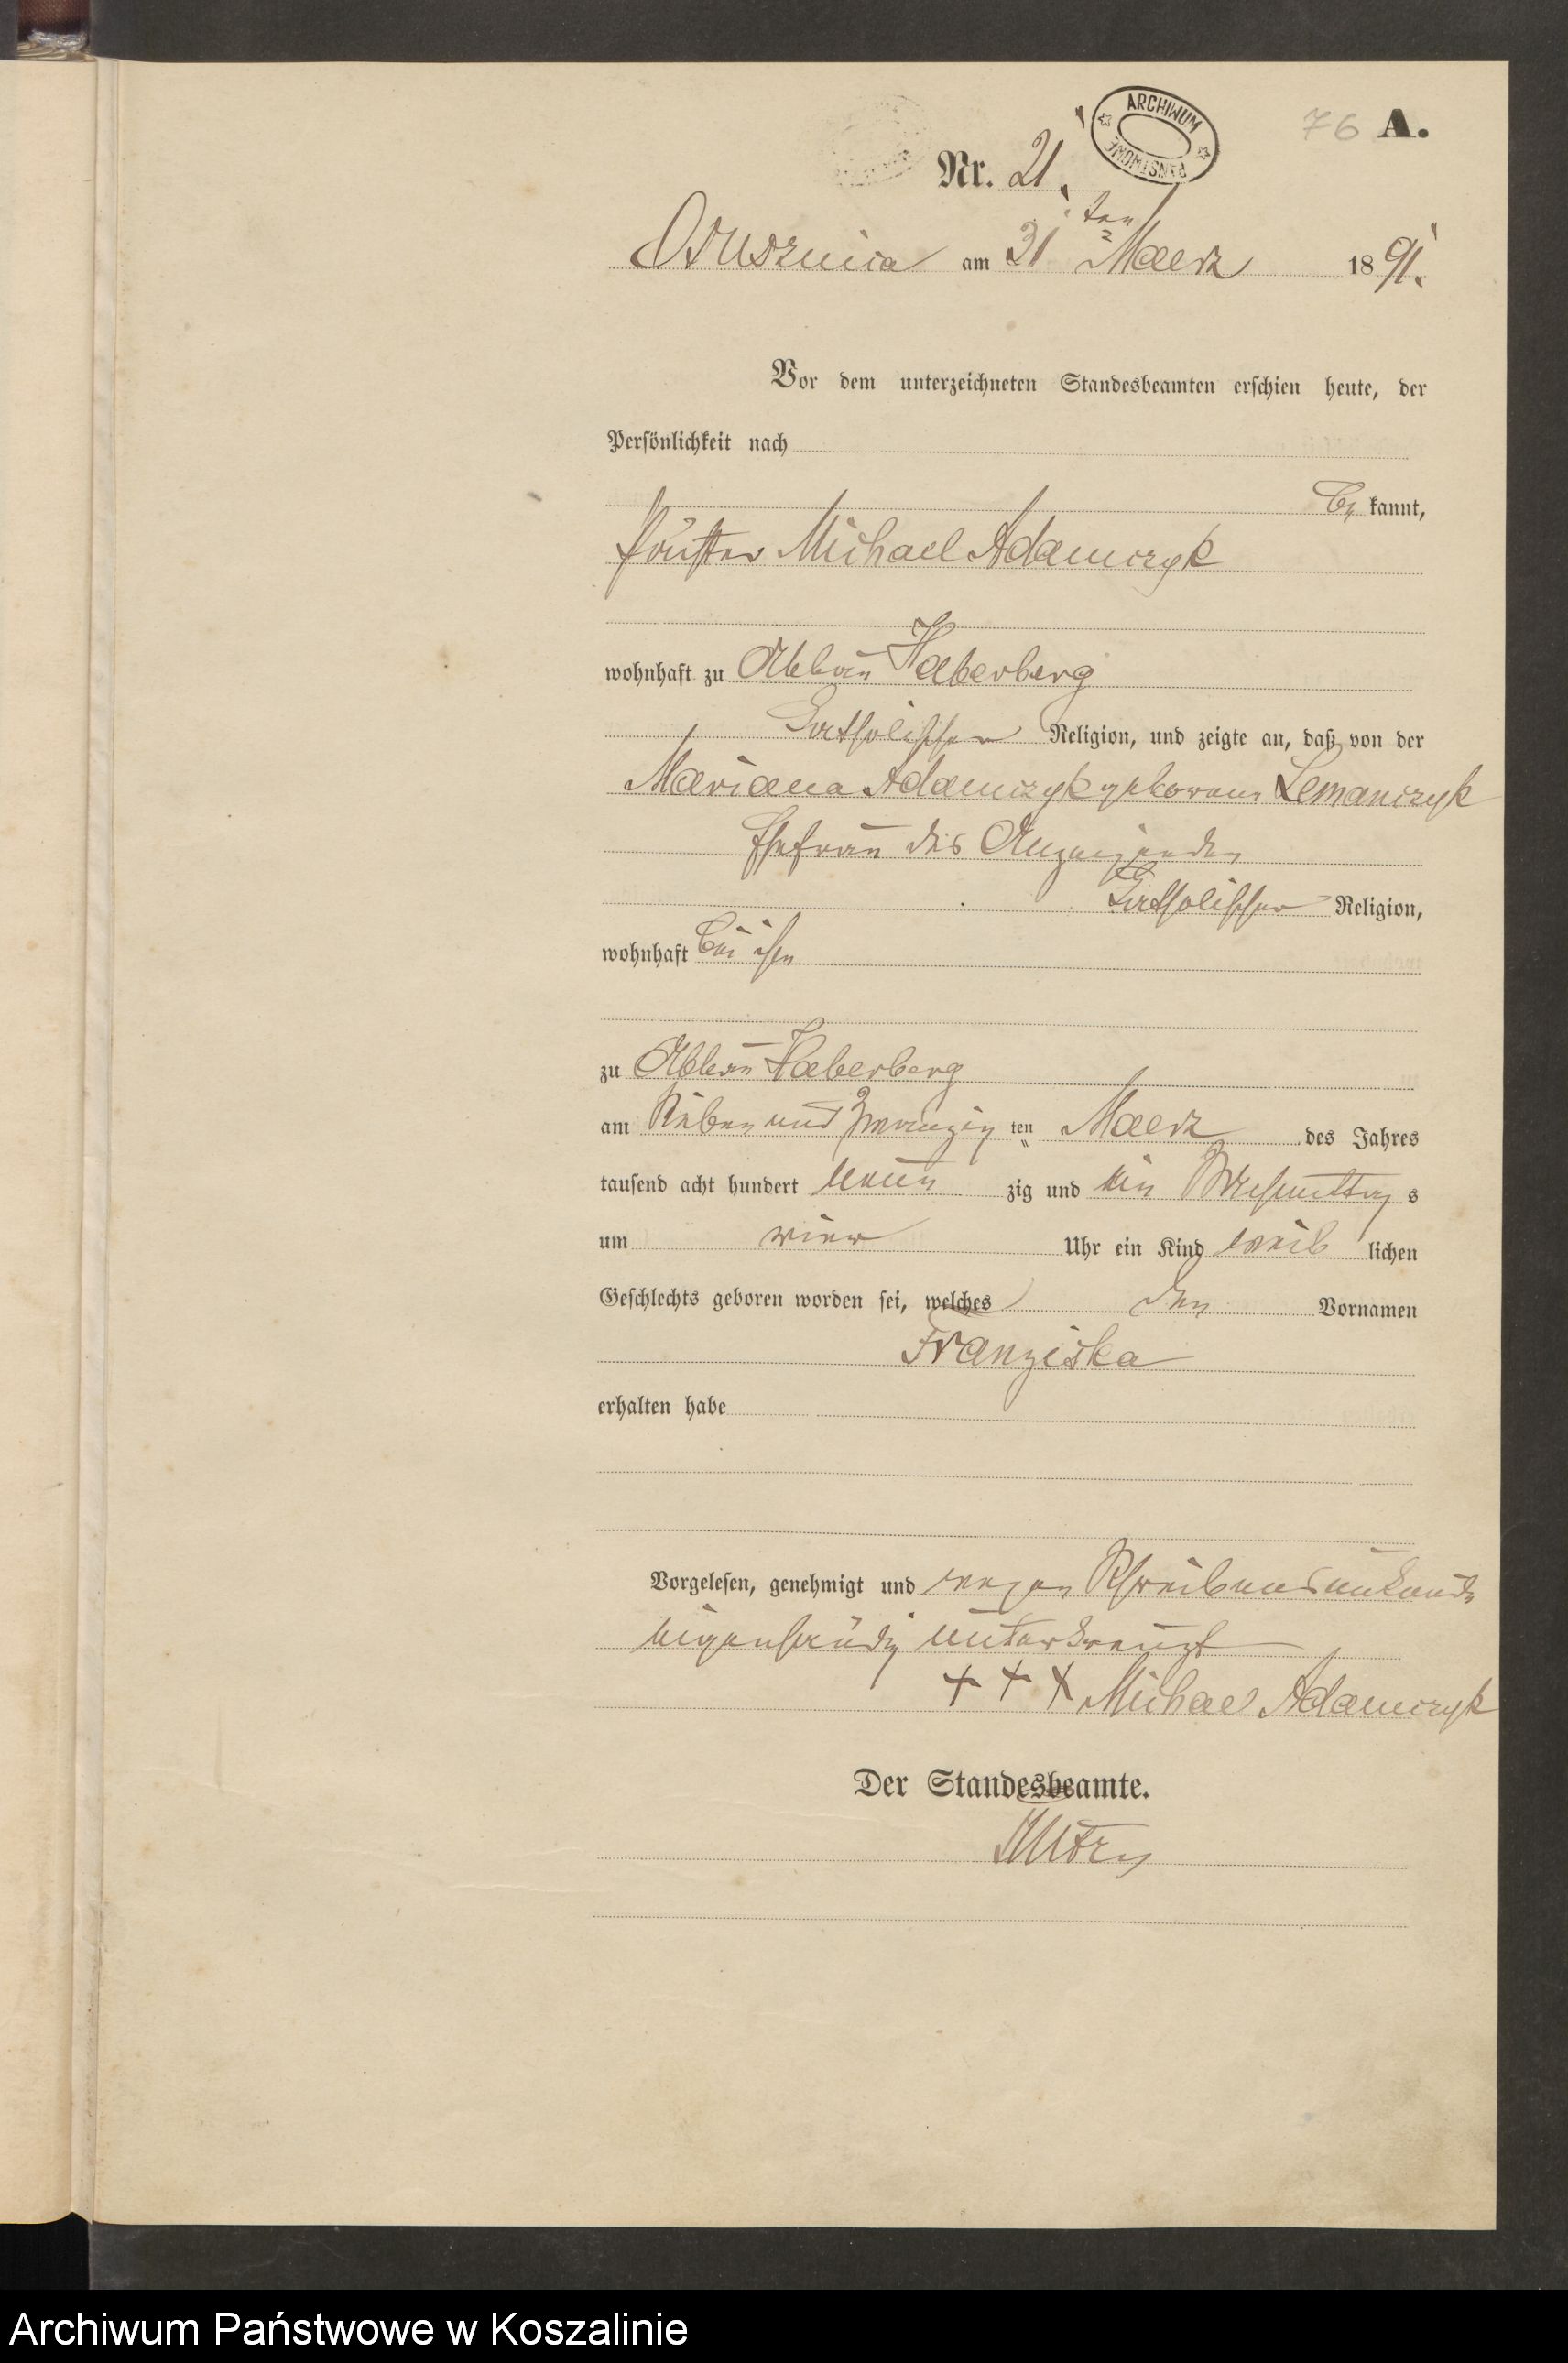 76 A.
ARCHIWUM PAŃSTWOWE
Nr. 21.
Ossusznica am 31 ten Maerz 1891.
Vor dem unterzeichneten Standesbeamten erschien heute, der
Persönlichkeit nach
be kannt,
Michael Adamczyk
wohnhaft zu Abbau Haberberg
Katholischer Religion, und zeigte an, daß von der
Mariana Adamczyk geborene Lemanczyk
Ehefrau des Anzeigenden
Katholischer Religion,
wohnhaft bei ihm
zu Abbau Haberberg
am Sieben und zwanzig ten Maerz des Jahres
tausend acht hundert neun zig und ein Nachmittag s
um vier Uhr ein Kind weib lichen
Geschlechts geboren worden sei, welches den Vornamen
Franziska
erhalten habe
Vorgelesen, genehmigt und wegen Schreibensunkunde
eigenhändig unterkreuzt
+ + + Michael Adamczyk
Der Standesbeamte.
Archiwum Państwowe w Koszalinie